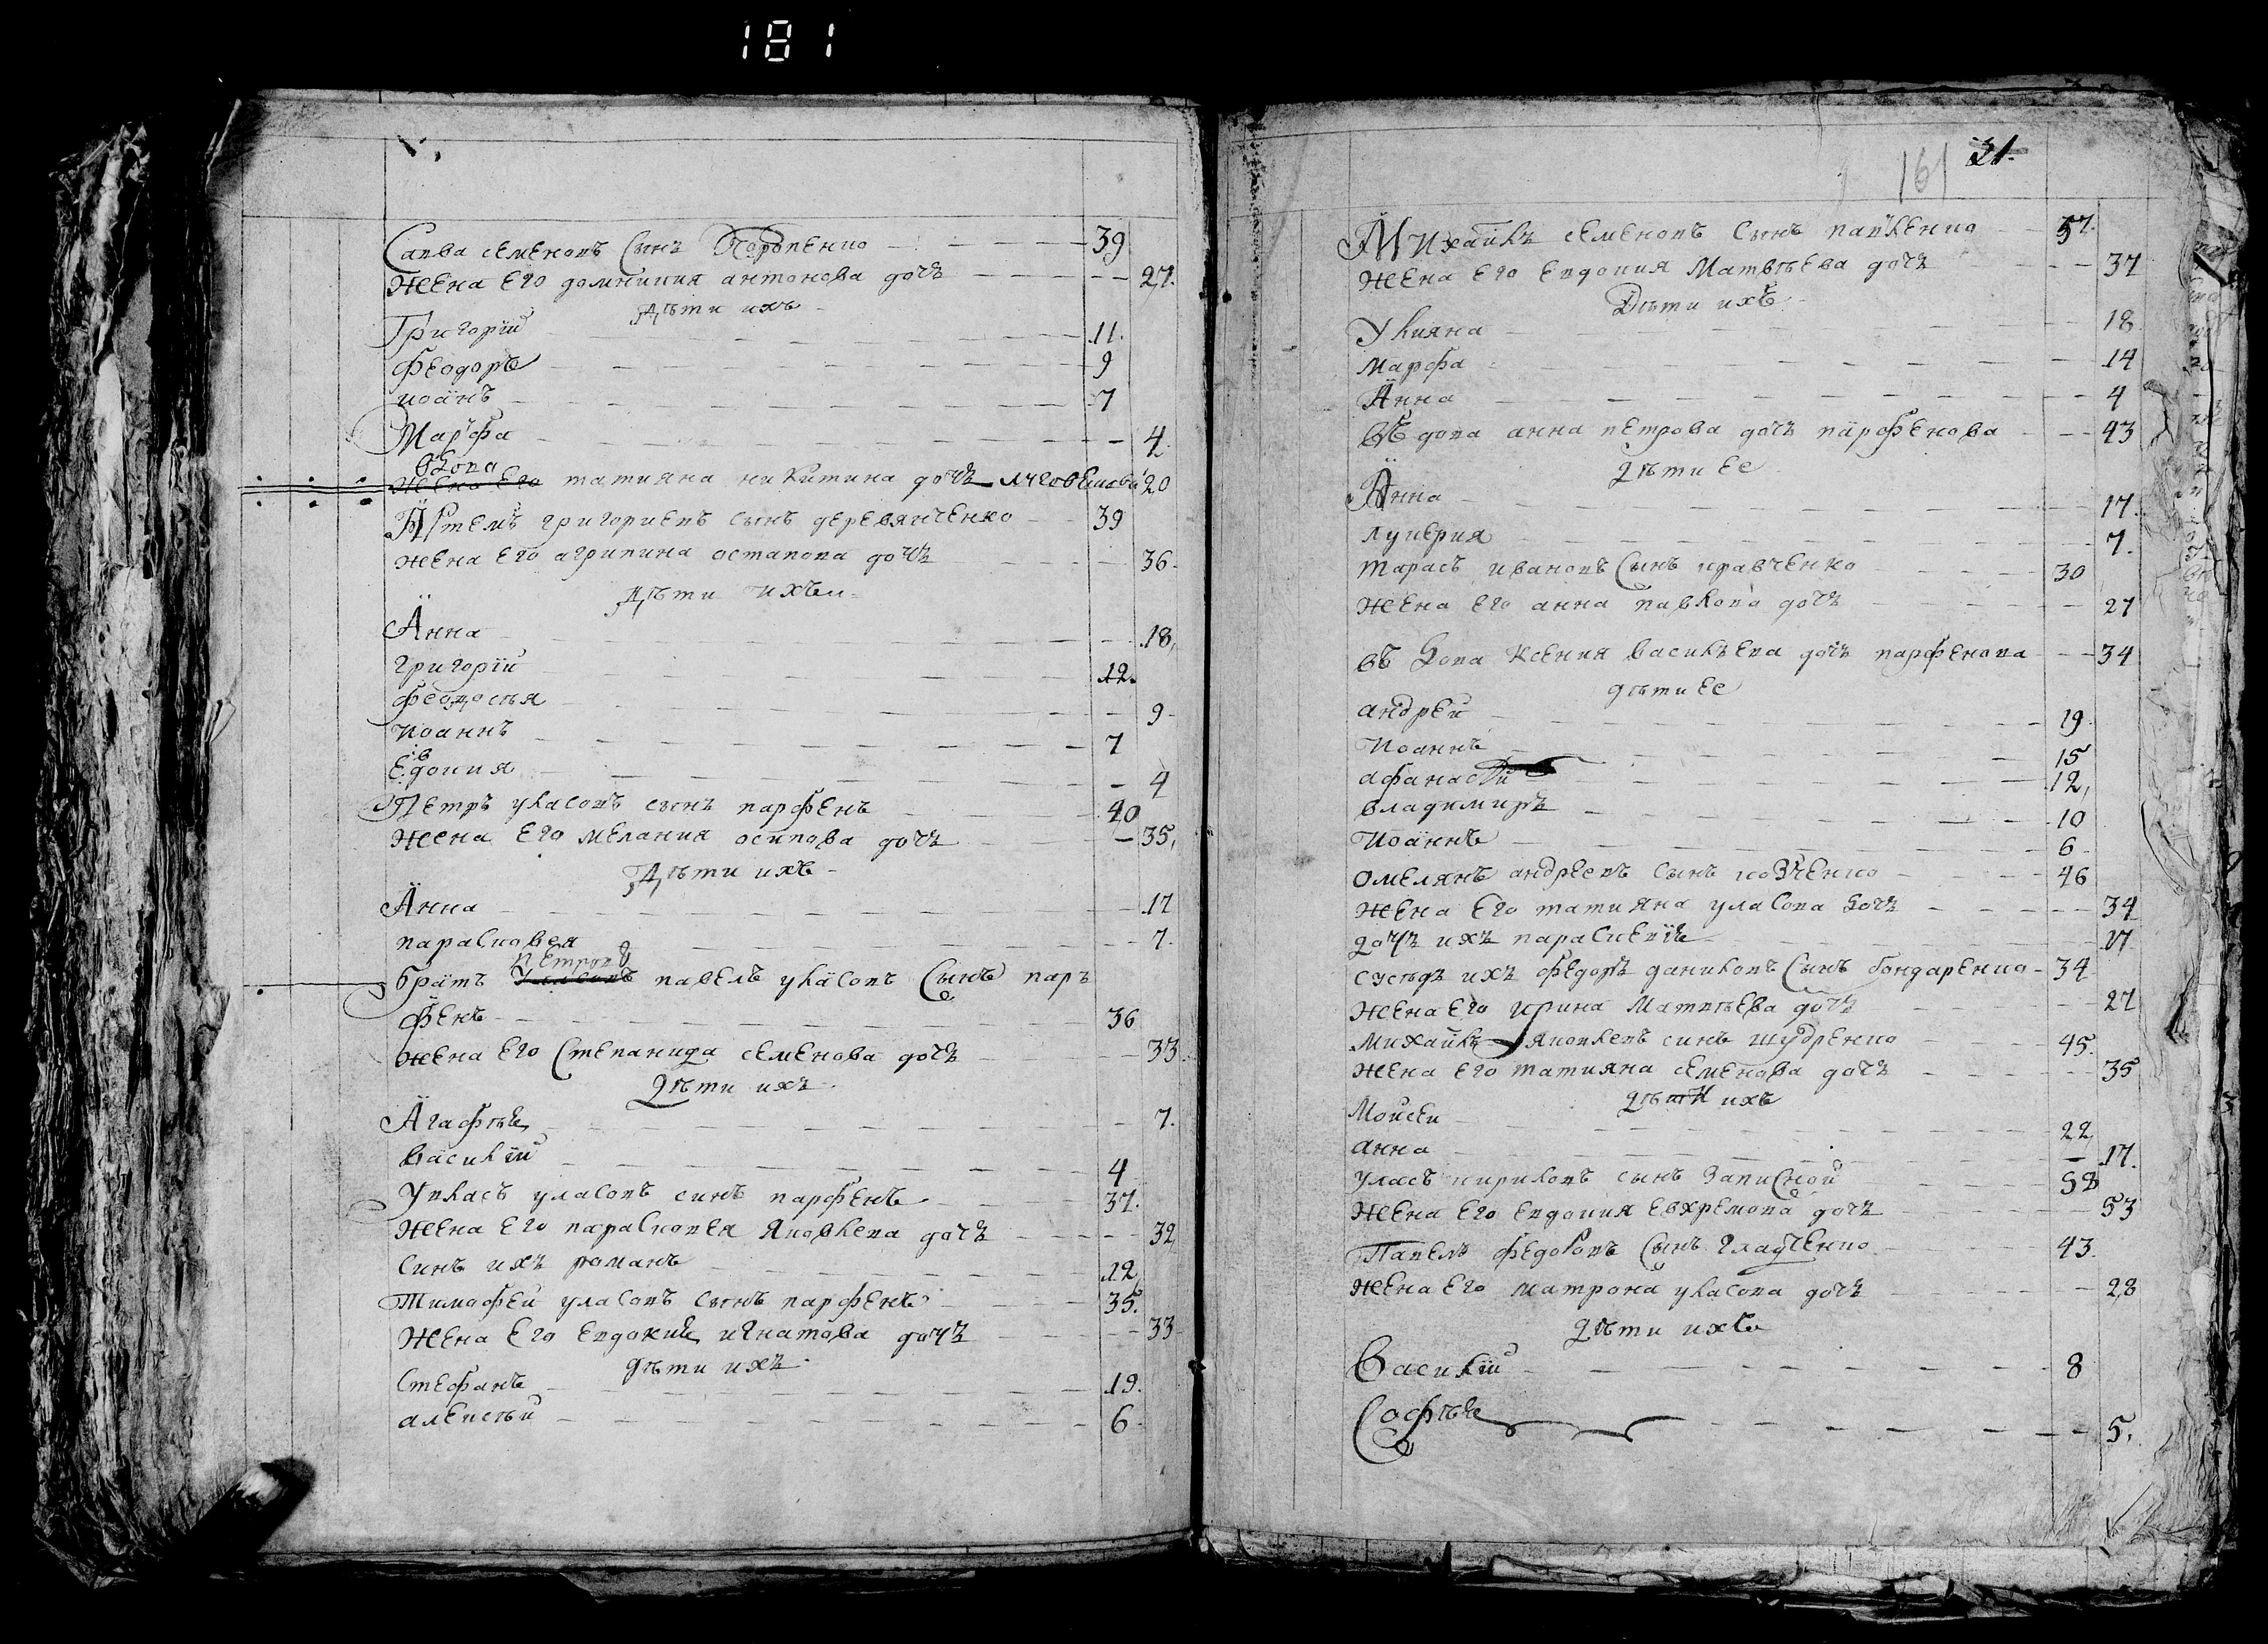 181
Савва семеновъ сынъ
39
жена его домникия антонова дочъ
27.
дѣти ихъ
Григорій
11.
феодоръ
9
иоанъ
7
Марфа
4
вдова
жена его татияна никитина дочъ
20
Артемъ григориевъ сынъ деревянченко
39
жена его агрипина остапова дочъ
36.
дѣти ихъ
Анна
18,
григорій
12.
феодосъя
9
иоаннъ
7
Евдокия
4
Петръ уласовъ сынъ парфенъ
40
жена его мелания осипова дочъ
35,
дѣти ихъ
Анна
17
парасковея
7.
петровъ
братъ уласовъ павелъ уласовъ сынъ пар
фенъ
36
жена его степанида семенова дочъ
33
дѣти ихъ
Агафѣя
7.
василій
4
Уласъ уласовъ синъ парфенъ
37.
жена его парасковея яковлева дочъ
32
синъ ихъ романъ
12
Тимофей уласовъ сынъ парфенъ
35.
жена его евдокия игнатова дочъ
33
дѣти ихъ
стефанъ
19.
алексѣй
6
161 31.
Михайлъ семеновъ сынъ павленко
57.
жена его евдокия матвѣева дочъ
37
Дѣти ихъ
Улияна
18
марфа
14
Анна
4
въдова анна петрова дочъ парфенова
43
дѣти ее
Анна
17.
лукерия
7.
тарасъ ивановъ сынъ кравченко
30
жена его анна павлова дочъ
27
въдова ксения василъева дочъ парфенова
34
дѣти ее
андрей
19.
Иоаннъ
15
афанасий
12,
владимиръ
10
Иоаннъ
6
омелянъ андреевъ сынъ козченко
46
жена его татияна уласова дочъ
34
дочъ ихъ параскевія
17
сусѣдъ ихъ федоръ даниловъ сынъ бондаренко
34
жена его ирина матвѣева дочъ
27
михайлъ яковлевъ синъ шудренко
45.
жена его татияна семенова дочъ
35
дѣти ихъ
Мойсей
22,
анна
17.
уласъ кириловъ сынъ записной
58
жена его евдокия евхремова дочъ
53
Павелъ федоровъ сынъ
43.
жена его матрона уласова дочъ
28
дѣти ихъ
Василій
8
Софѣя
5.